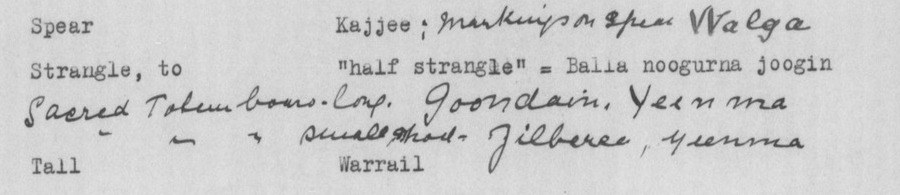 Spear Kajjee; markings on spear Walga
Strangle, to "half strangle" = Balla noogurna joogin
Sacred Totem boards - long. Goondain, Yeenma
" " " small shad- Jilberee, yeenma
Tall Warrail